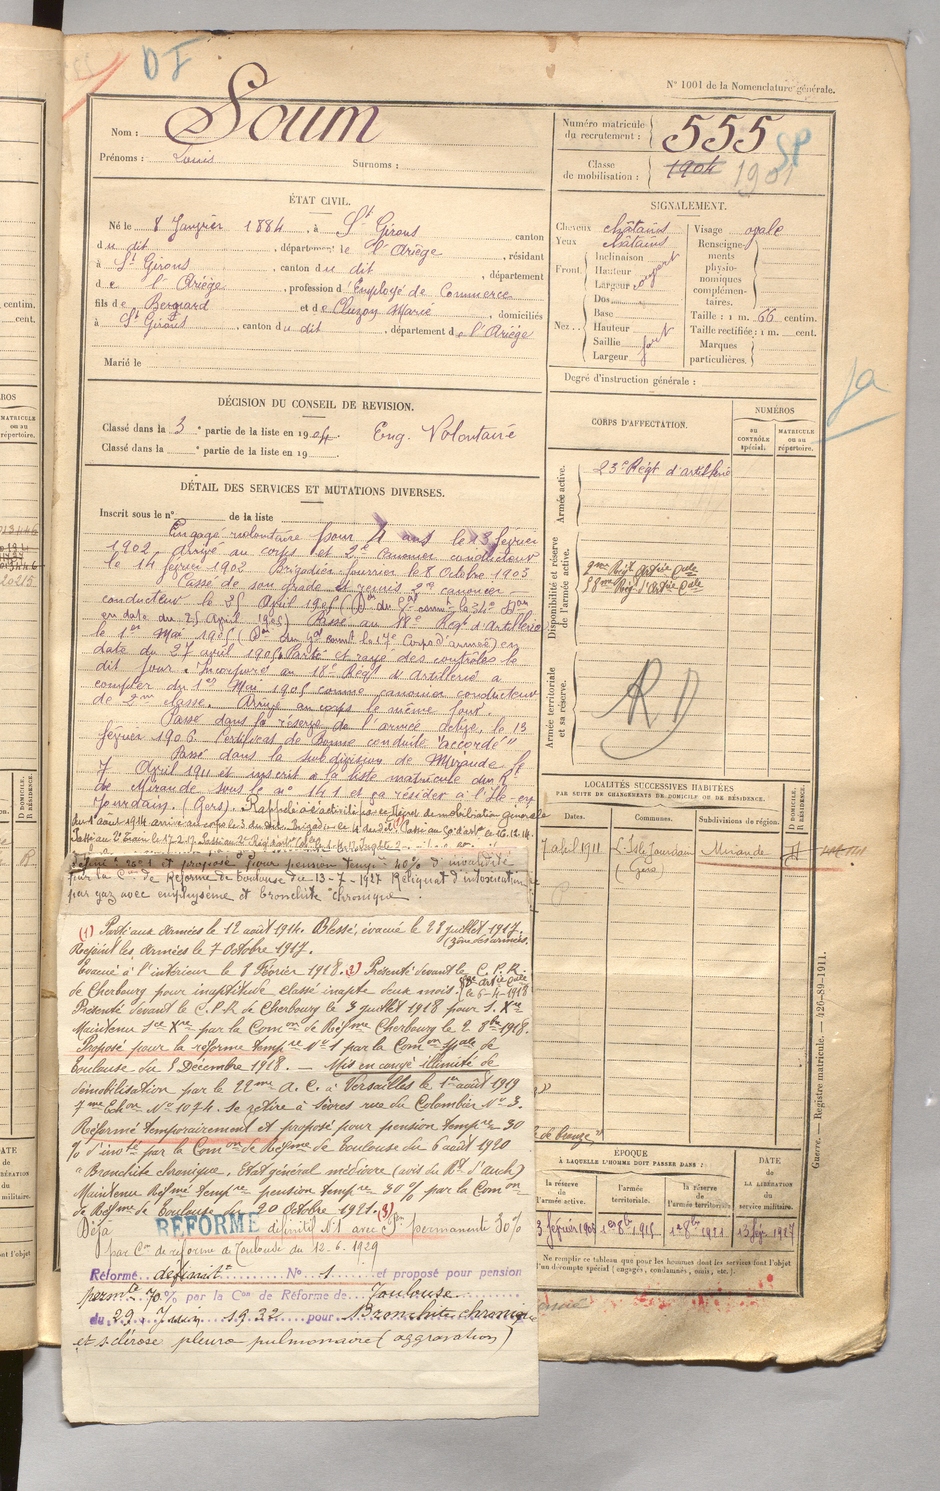 D F
N° 1001 de la Nomenclature générale.
Nom : Soum
Prénoms : Louis Surnoms :
Numéro matricule du recrutement : 555
Classe de mobilisation : 1904 1901
SP
ÉTAT CIVIL.
Né le 8 Janvier 1884, à St Girons canton
du dit, département de l'Ariège, résidant
à St Girons, canton du dit, département
de l'Ariège, profession d'Employé de Commerce
fils de Bernard et de Cluzon Marie, domiciliés
à St Girons, canton du dit, département de l'Ariège
Marié le
SIGNALEMENT.
Cheveux châtains
Yeux châtains
Front. Inclinaison
Hauteur
Largeur
Nez. Dos
Base
Hauteur
Saillie
Largeur
Visage ovale
Renseignements physionomiques complémentaires.
Taille : 1 m. 66 centim.
Taille rectifiée : 1 m. cent.
Marques particulières.
Degré d'instruction générale :
DÉCISION DU CONSEIL DE REVISION.
Classé dans la 3e partie de la liste en 1904. Eng. Volontaire
Classé dans la e partie de la liste en 19
DÉTAIL DES SERVICES ET MUTATIONS DIVERSES.
Inscrit sous le n° de la liste
Engagé volontaire pour 4 ans le 13 février
1902 arrivé au corps et 2e canonier conducteur
le 14 février 1902 Brigadier fourrier le 8 Octobre 1903
Cassé de son grade et remis 2e canonier
conducteur le 25 April 1905 (Don du Gal commt la 34e Don
en date du 25 April 1905) Passé au 18e Régt d'artillerie
le 1er Mai 1905 (Don du Gal commt le 17e Corps d'armée) en
date du 27 april 1905. Parti et rayé des contrôles le
dit jour. Incorporé au 18e Régt d'Artillerie à
compter du 1er Mai 1905 comme canonier conducteur
de 2me classe. Arrivé au corps le même jour.
Passé dans la réserve de l'armée active, le 13
février 1906. Certificat de Bonne conduite "accordé"
Passé dans la subdivision de Mirande le
7 April 1911 et inscrit à la liste matricule du R
de Mirande sous le n° 141 et va résider à l'Ile-en-
Jourdain. (Gers). Rappelé à l'activité par ordre de mobilisation Générale
du 1er août 1914 arrivé au corps le 3 du dit. Brigadier le 4 du dit. Passé au 50e d'art le 16.12.14.
Réformé n° 1 et proposé pour pension tempre 40% d'invalidité
par la Con de Réforme de Toulouse du 13-7-1927 Reliquat d'intoxication
par gaz avec emphysème et bronchite chronique.
(1) Parti aux armées le 12 août 1914. Blessé, évacué le 28 juillet 1917.
Rejoint les armées le 7 Octobre 1917. (zône des armées.
Evacué à l'intérieur le 8 Février 1918. (2) Présenté devant la C.P.R.
de Cherbourg pour inaptitude classé inapte deux mois. le 5-4-1918
Présenté devant le C.P.R de Cherbourg le 3 juillet 1918 pour S. Xre
Maintenu Sce Xre par la Common de Réfme Cherbourg le 2 8bre 1918.
Proposé pour la réforme tempre N° 1 par la Common spale de
Toulouse du 5 Décembre 1918. — Mis en congé illimité de
démobilisation par le 22me A.C. à Versailles le 1er août 1919
7me Echon N° 1074. Se retire à Sèvres rue du Colombier N° 3.
Réformé temporairement et proposé pour pension tempre 30
% d'invté par la Common de Réfme de Toulouse du 6 août 1920
"Bronchite chronique. Etat général médiocre (avis du Rt d'auch)
Maintenu Réfmé tempre pension tempre 30% par la Common
de Réfme de Toulouse du 20 Octobre 1921. (3)
Déjà RÉFORMÉ définitif N° 1 avec Pon permanente 30%
par Con de réforme de Toulouse du 12-6-1929
Réformé définitt N° 1 et proposé pour pension
permte 70% par la Con de Réforme de Toulouse
du 29 Juin 1932 pour Bronchite chronique
et sclérose pleuro pulmonaire (aggravation)
CORPS D'AFFECTATION.
NUMÉROS
AU CONTRÔLE spécial.
MATRICULE ou au répertoire.
Armée active.
23e Régt d'artillerie
Disponibilité et réserve de l'armée active.
9me Régt Artie Cale
38me Régt d'Artie Cale
Armée territoriale et sa réserve.
RD
LOCALITÉS SUCCESSIVES HABITÉES
PAR SUITE DE CHANGEMENTS DE DOMICILE OU DE RÉSIDENCE.
Dates. Communes. Subdivisions de région. D. DOMICILE. R. RÉSIDENCE.
7 april 1911 L'Isle Jourdain Mirande
(Gers)
de bronze"
ÉPOQUE
À LAQUELLE L'HOMME DOIT PASSER DANS :
DATE DE LA LIBÉRATION du service militaire.
la réserve de l'armée active. l'armée territoriale. la réserve de l'armée territoriale.
13 février 1906 1er 8bre 1915 1er 8bre 1921 13 fév. 1927
Ne remplir ce tableau que pour les hommes dont les services font l'objet d'un décompte spécial (engagés, condamnés, omis, etc.).
Guerre. — Registre matricule. — 426-89-1911.